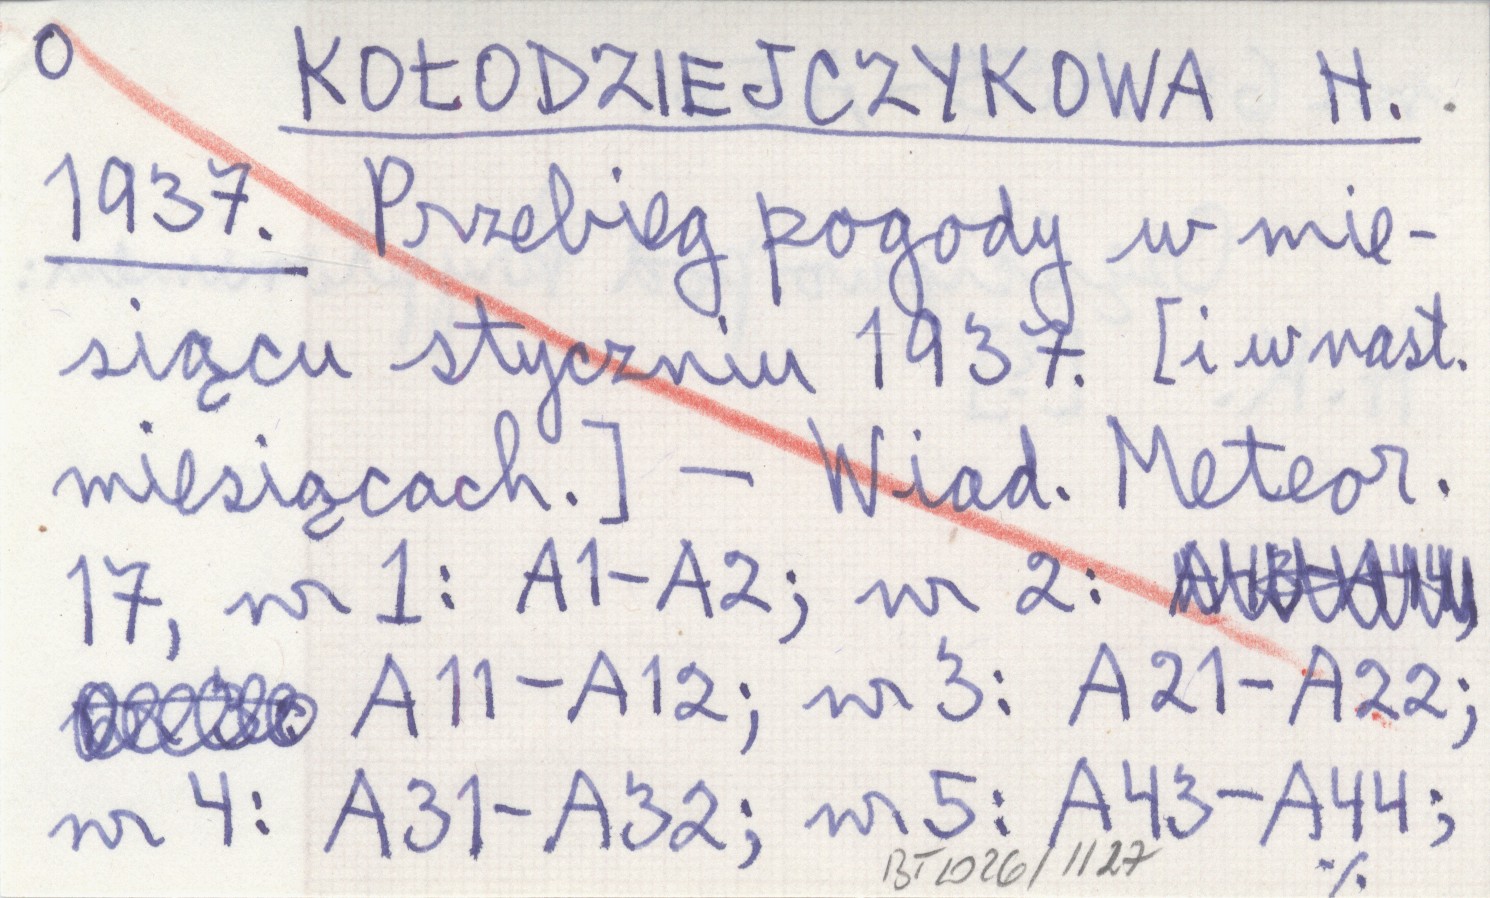 O KOŁODZIEJCZYKOWA H.
1937. Przebieg pogody w mie-
siącu styczniu 1937. [i w nast.
miesiącach.] — Wiad. Meteor.
17, nr 1: A1-A2; nr 2:
A11-A12; nr 3: A21-A22;
nr 4: A31-A32; nr 5: A43-A44;
BT1026/1127 ·/.